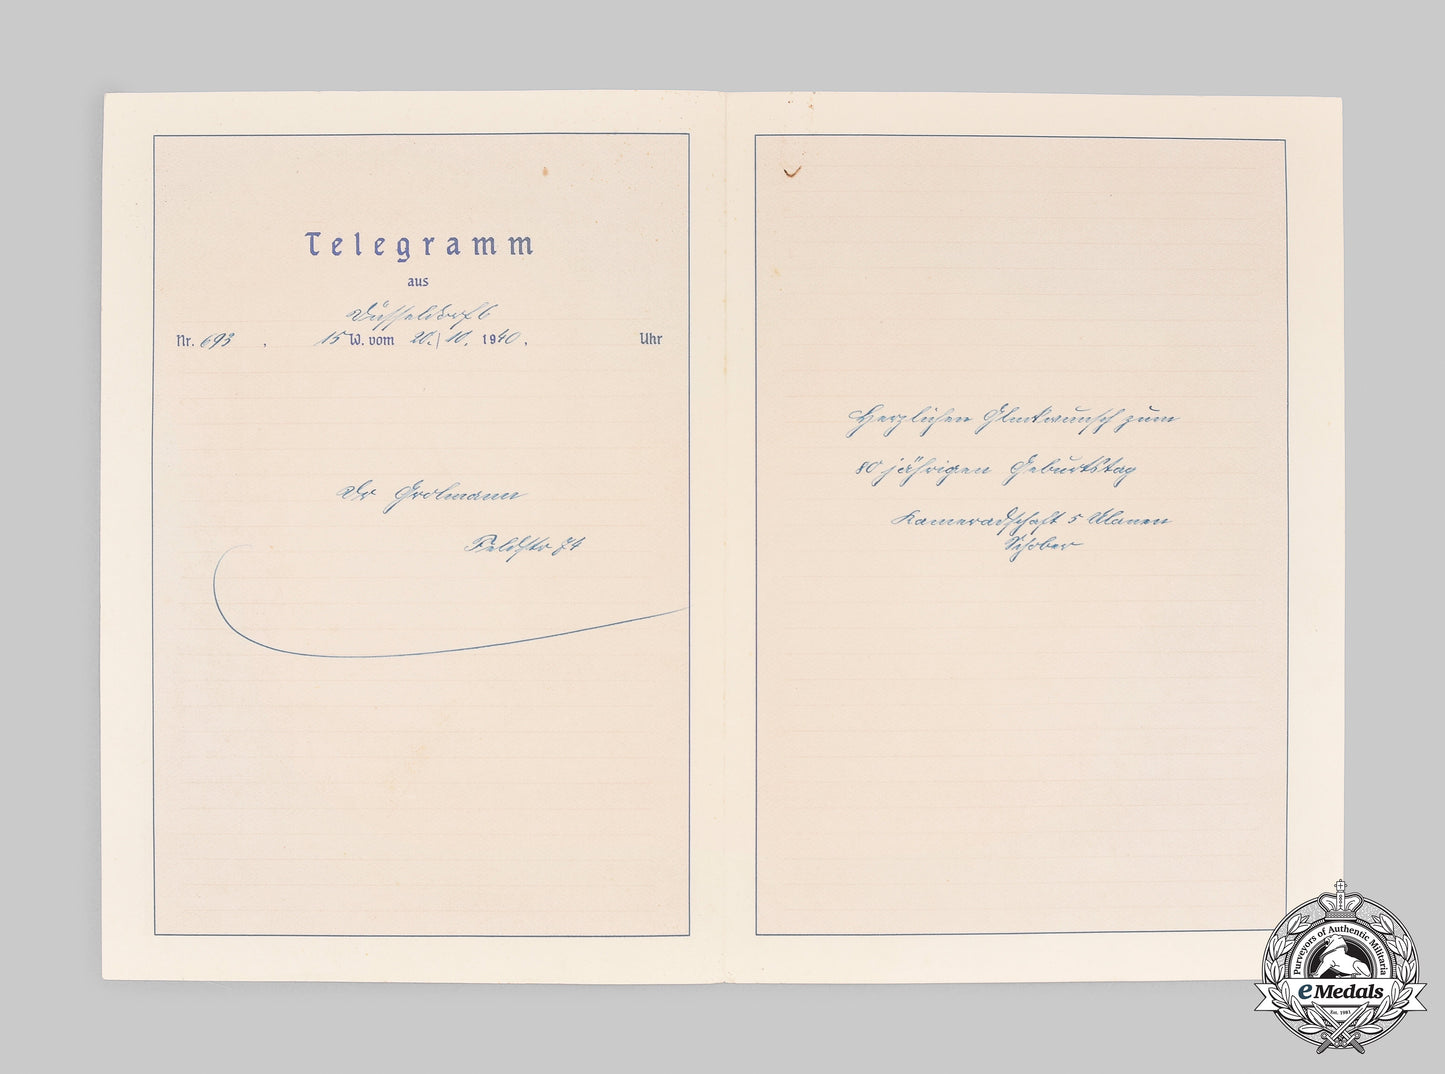 Telegramm
aus
Düsseldorf 6
Nr. 693 , 15 W. vom 20./10. 1940, Uhr
Dr Grolmann
Feldstr 74
Herzlichen Glückwunsch zum
80 jährigen Geburtstag
Kameradschaft 5 Ulanen
Schober
Purveyors of Authentic Militaria
eMedals
Est. 1981